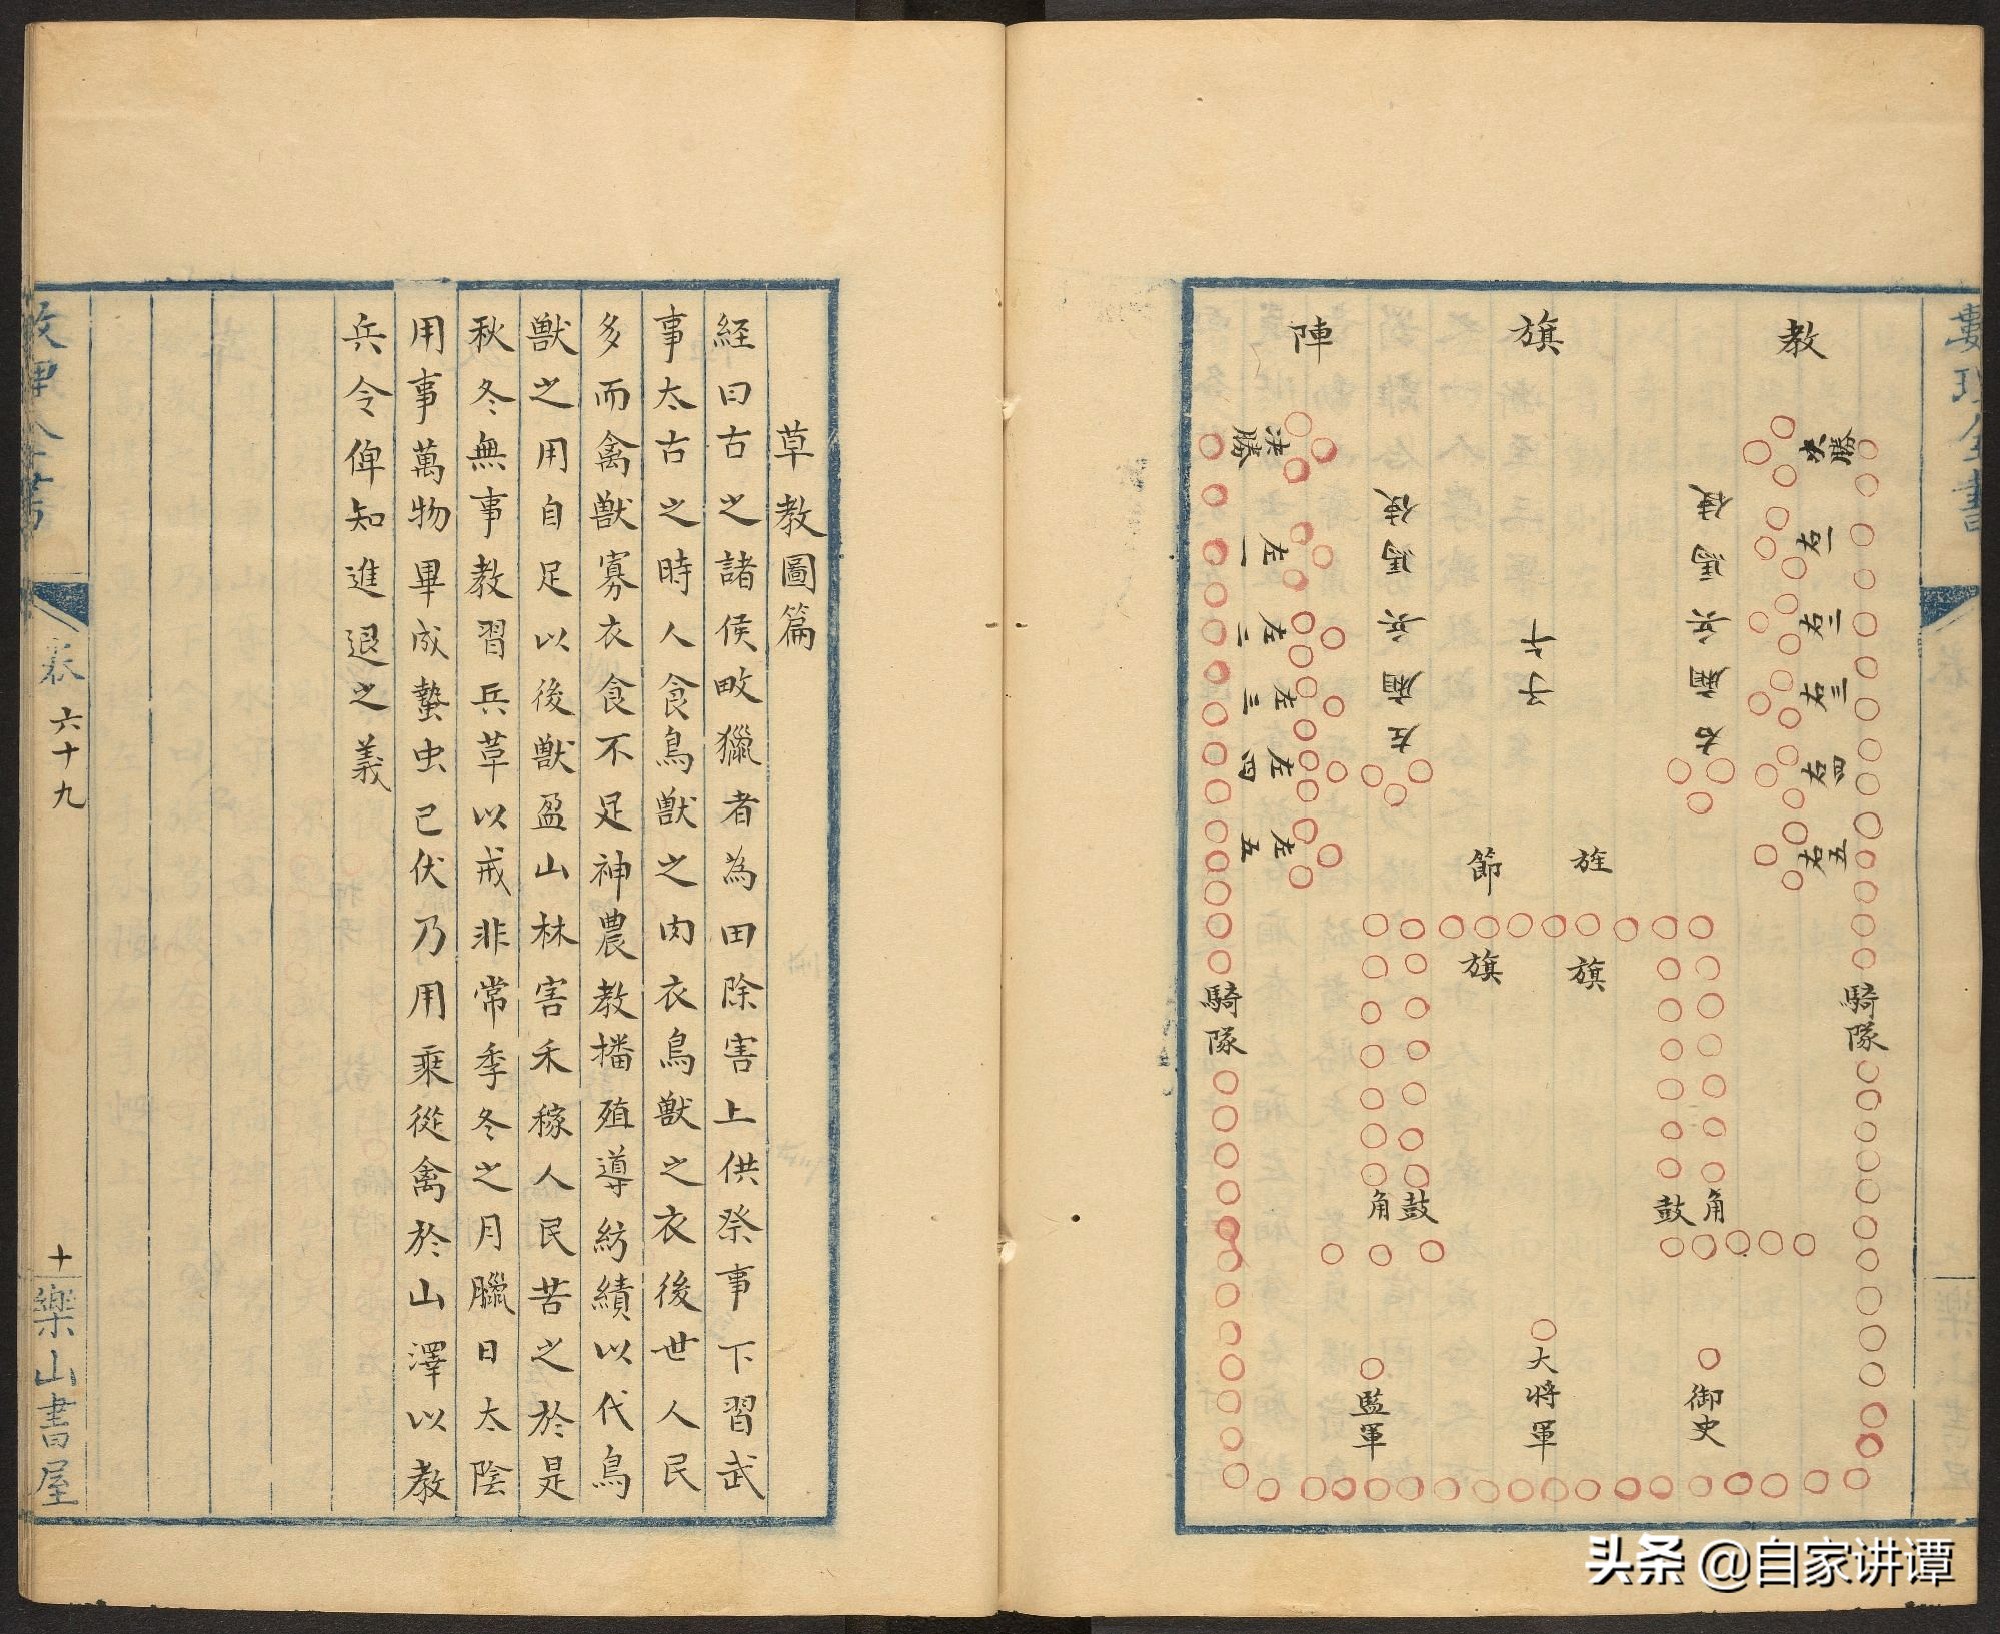 數理全書
教旗陣
決勝
右一
右二
右三
右四
右五
騎隊
右廂兵馬使
子
左廂兵馬使
決勝
左一
左二
左三
左四
左五
騎隊
旌
節
旗
旗
角
鼓
鼓
角
御史
大將軍
監軍
草教圖篇
経曰古之諸侯畋獵者為田除害上供祭事下習武
事太古之時人食鳥獸之肉衣鳥獸之衣後世人民
多而禽獸寡衣食不足神農教播殖導紡績以代鳥
獸之用自足以後獸盈山林害禾稼人民苦之於是
秋冬無事教習兵草以戒非常季冬之月臘日太陰
用事萬物畢成蟄虫已伏乃用乘從禽於山澤以教
兵令俾知進退之義
卷六十九
十
樂山書屋
头条 @自家讲谭